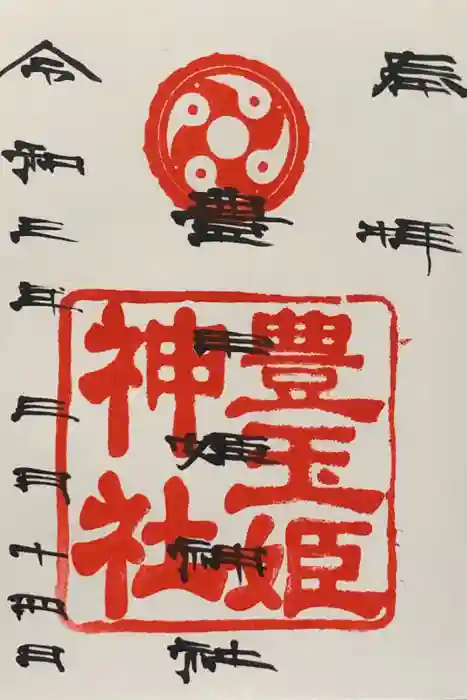 奉拝
豊玉姫神社
豊玉姫
神社
令和年月十日